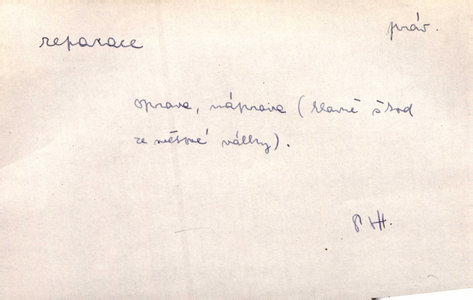 reparace
práv.
oprava, náprava (hlavně škod
ze světové války).